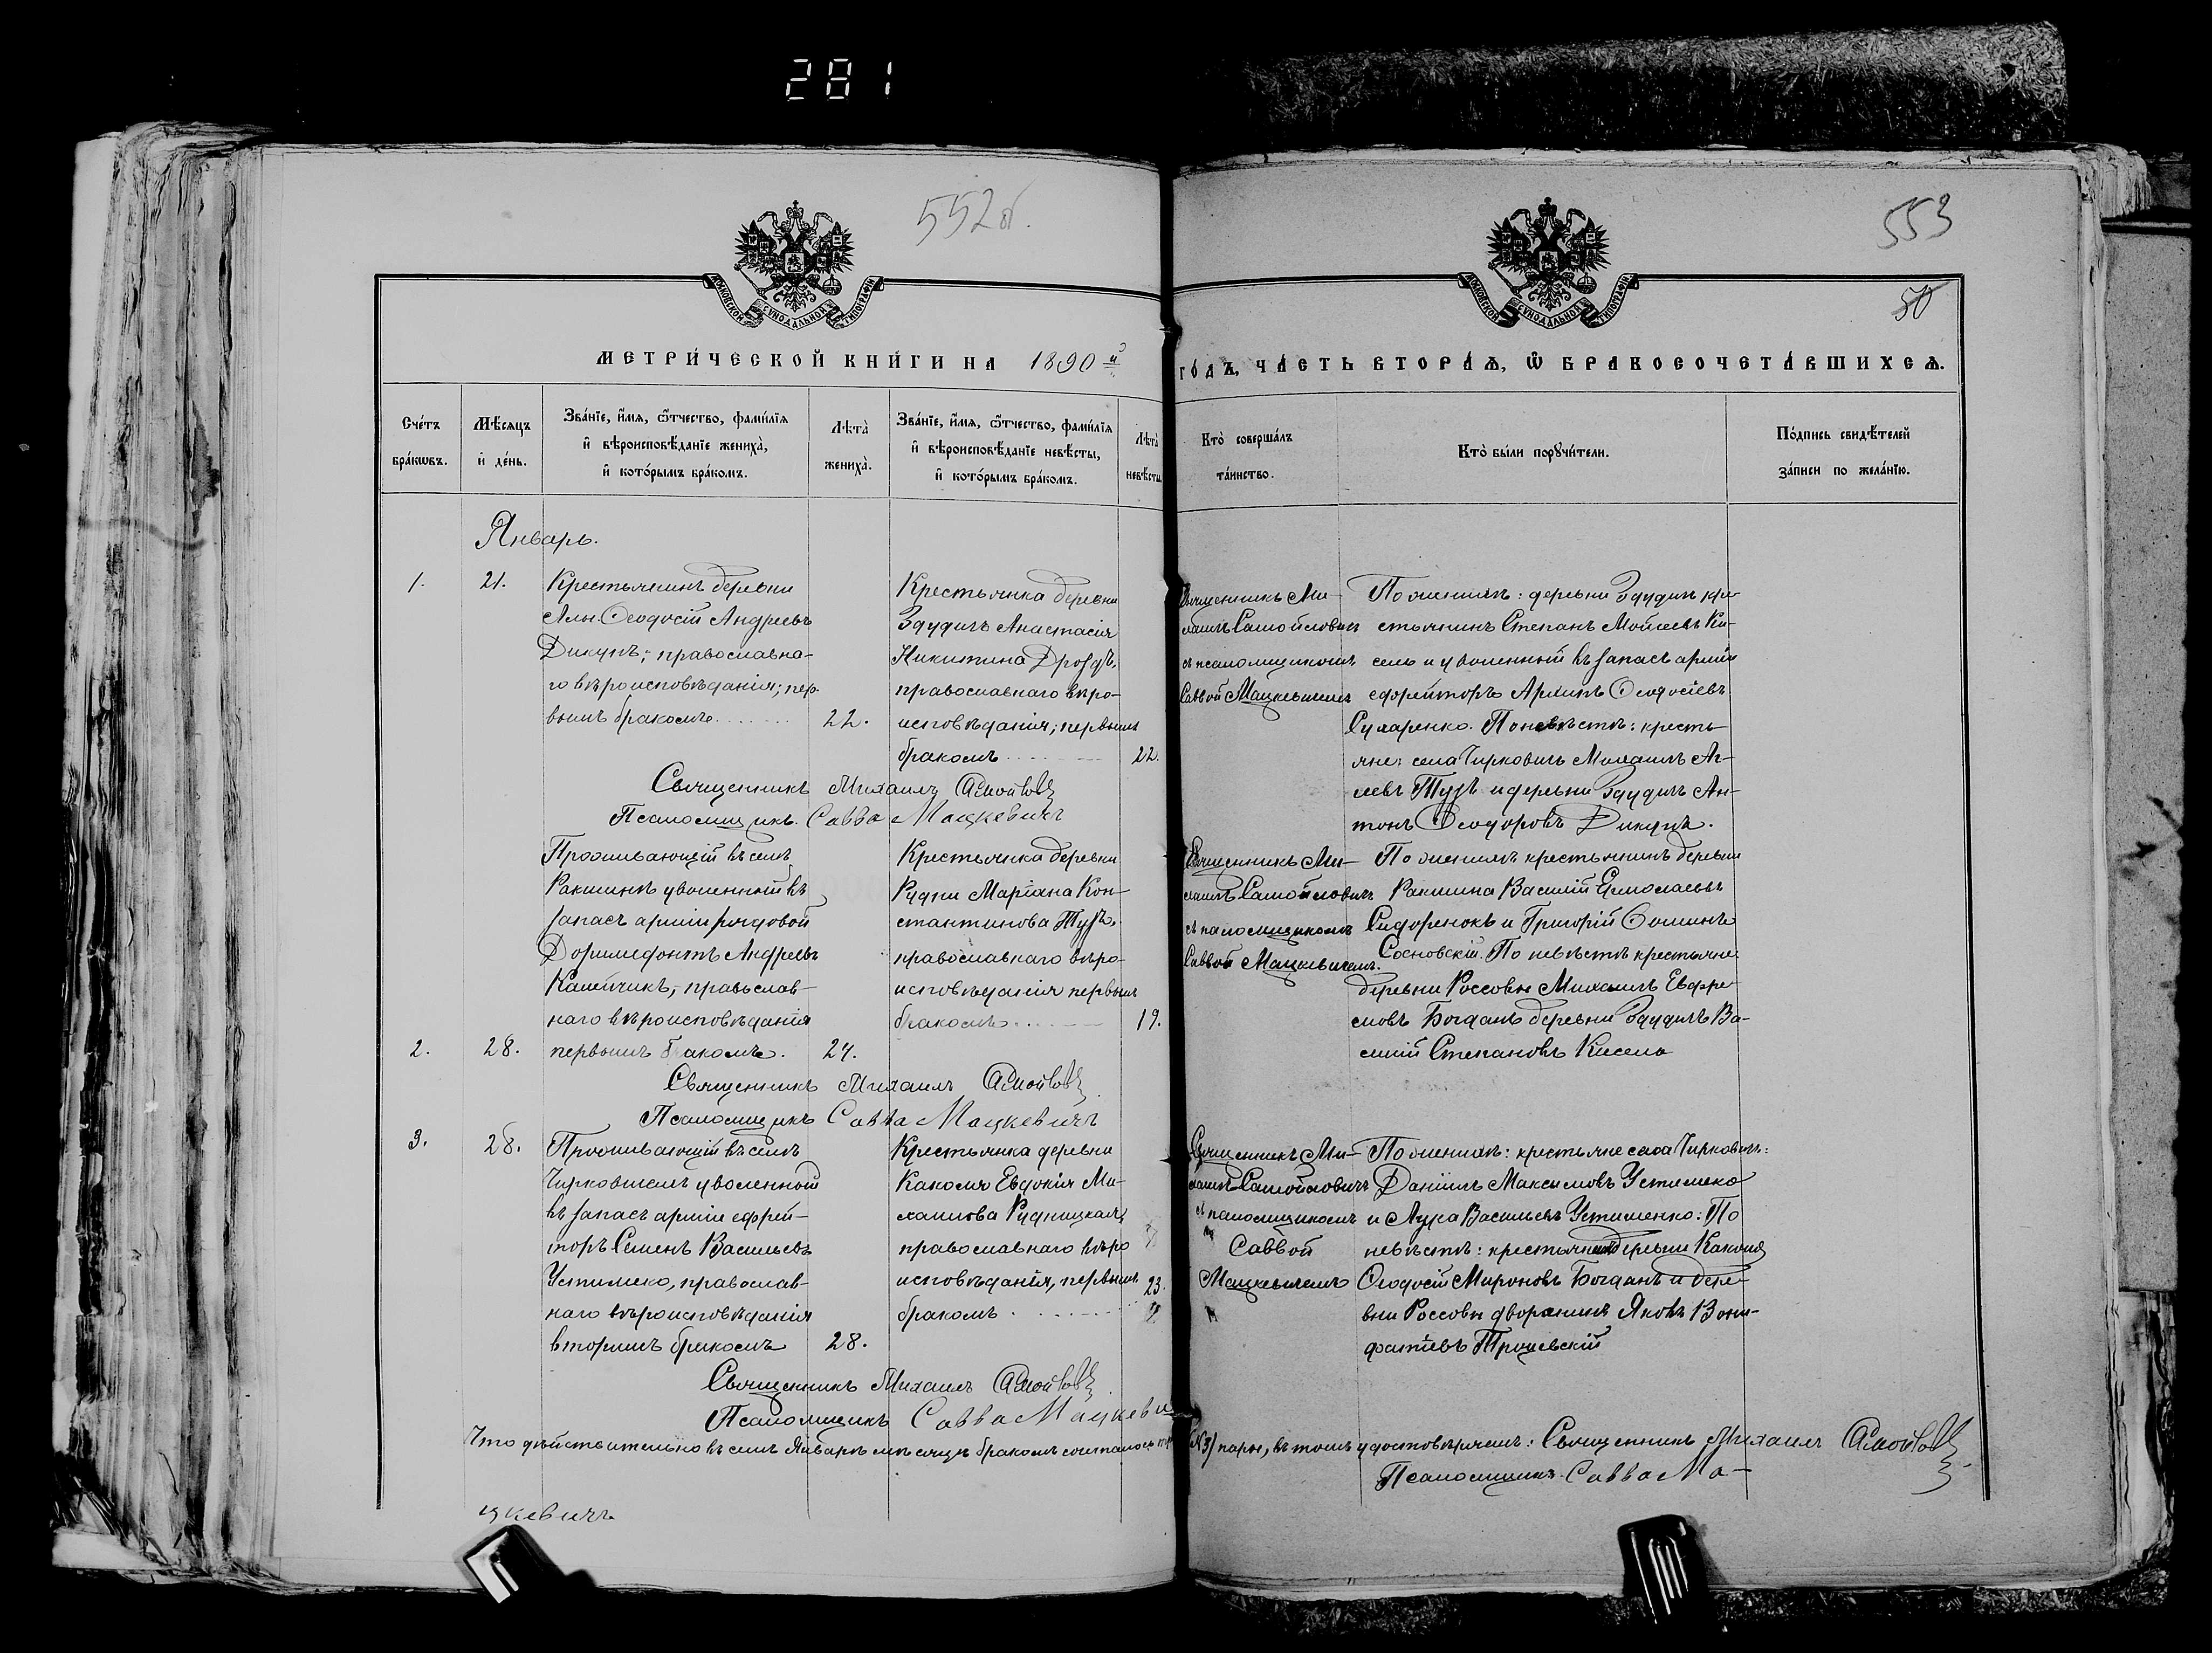 281
552об.
553
50
МОСКОВСКОЙ СѴНОДАЛЬНОЙ ТИПОГРАФІИ
МОСКОВСКОЙ СѴНОДАЛЬНОЙ ТИПОГРАФІИ
МЕТРИ́ЧЕСКОЙ КНИ́ГИ НА 1890й
ГО́ДЪ, ЧА́СТЬ ВТОРА́Ѧ, Ѽ БРАКОСОЧЕТА́ВШИХСѦ.
Сче́тъ бра́кѡвъ.
Мѣ́сяцъ и҆ де́нь.
Зва́нїе, и҆́мѧ, ѻ҆́тчество, фами́лїѧ
и҆ вѣроисповѣ́данїе жениха̀,
и҆ кото́рымъ бра́комъ.
Лѣта̀ жениха̀.
Зва́нїе, и҆́мѧ, ѻ҆́тчество, фами́лїѧ
и҆ вѣроисповѣ́данїе невѣ́сты,
и҆ кото́рымъ бра́комъ.
Лѣта̀ невѣ́сты
Кто̀ соверша́лъ
та́инство.
Кто̀ бы́ли порꙋчи́тели.
По́дпись свидѣ́телей
за́писи по жела́нїю.
Январь.
1.
21.
Крестьянинъ деревни
Ѳеодосій Андреевъ
Дикунъ; православна-
го вѣроисповѣданія; пер-
вымъ бракомъ
22.
Крестьянка деревни
Здудичъ Анастасія
Никитина Дроздъ,
православнаго вѣро-
исповѣданія; первымъ
бракомъ
22.
Священникъ Ми-
хаилъ Самойловичъ
съ псаломщикомъ
Саввой Мацкевичемъ
По женихѣ: деревни Здудичъ кре-
стьянинъ Степанъ Мойсеевъ Ки-
сель и уволенный въ запасъ арміи
ефрейторъ Архипъ Ѳеодосіевъ
Сухаренко. По невѣстѣ: кресть-
яне: села Чирковичъ Михаилъ
Тузъ и деревни Здудичъ Ан-
тонъ Ѳеодоровъ Дикунъ.
Священникъ Михаилъ Самойлов
Псаломщикъ Савва Мацкевичъ
2.
28.
Проживающій въ селѣ
Ракшинѣ уволенный въ
запасъ арміи рядовой
Доримедонтъ Андреевъ
Капейчикъ, православ-
наго вѣроисповѣданія
первымъ бракомъ.
24.
Крестьянка деревни
Рудни Маріана Кон-
стантинова Тузъ,
православнаго вѣро-
исповѣданія первымъ
бракомъ
19.
Священникъ Ми-
хаилъ Самойловичъ
съ псаломщикомъ
Саввой Мацкевичемъ.
По женихѣ крестьянинъ деревни
Ракшина Василій Ермолаевъ
Сидоренокъ и Григорій Ѳоминъ
Сосновскій. По невѣстѣ крестьяне
деревни Россовы Михаилъ Евфре-
мовъ Богданъ деревни Здудичъ Ва-
силій Степановъ Кисель
Священникъ Михаилъ Самойлов
Псаломщикъ Савва Мацкевичъ
3.
28.
Проживающій въ селѣ
Чирковичахъ уволенный
въ запасъ арміи ефрей-
торъ Семенъ Васильевъ
Устименко, православ-
наго вѣроисповѣданія
вторымъ бракомъ
28.
Крестьянка деревни
Какеля Евдокія Ми-
хаилова Рудницкая,
православнаго вѣро
исповѣданія, первымъ
бракомъ
23.
Священникъ Ми-
хаилъ Самойловичъ
съ псаломщикомъ
Саввой
Мацкевичемъ
По женихѣ: крестьяне села Чирковичъ:
Даніилъ Максимовъ Устименко
и Лука Васильевъ Устименко: По
невѣстѣ: крестьянинъ деревни
Ѳеодосій Мироновъ Богданъ и дере-
вни Россовы дворянинъ Яковъ Вони-
фатіевъ
Священникъ Михаилъ Самойлов
Псаломщикъ Савва Мацкеви
Что дѣйствительно въ семъ Январѣ мѣсяцѣ бракомъ сочталось три /№ 3/ пары, въ томъ удостовѣряемъ: Священникъ Михаилъ Самойлов
Псаломщикъ Савва Ма-
цкевичъ